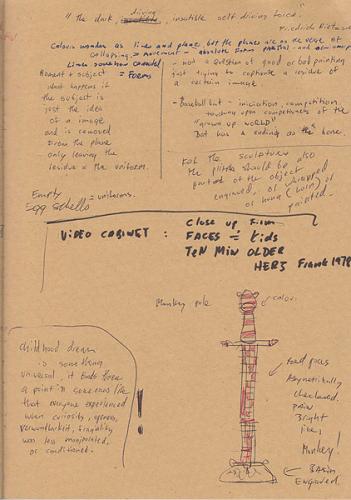 "the dark, driving insatiable self diving force."
Friedrich
Colours wonder as line and plane but the planes are on the verge of
collapsing = movement - absolute forms
Lines somehow
Moment + subject = FORMS
what happens if
the subject is
just the idea
of a image
and is removed
from the plane
only leaving the
residue = the uniform.
- not a question of good or bad painting
just trying to capture a residue of
a certain image
- Baseball bat - initiation, competition,
touching upon competitiveness of the
"grown up WORLD"
But has a ending as the bone.
For the sculpture
the plinths should be also
part of the object
engraved, or wrapped
or hung or
painted.
Empty
Egg shells = uniforms.
VIDEO CABINET :
Close up Film
FACES = Kids
TEN MIN OLDER
HERZ Frank 1978
Monkey pole
colour
childhood dream
is something
universal, it finds
a point in someones life
that everyone experienced
when curiosity,
singularity
was less manipulated,
or conditioned.
!
Asymmetrically
Bright
Monkey!
Basin
Engraved.